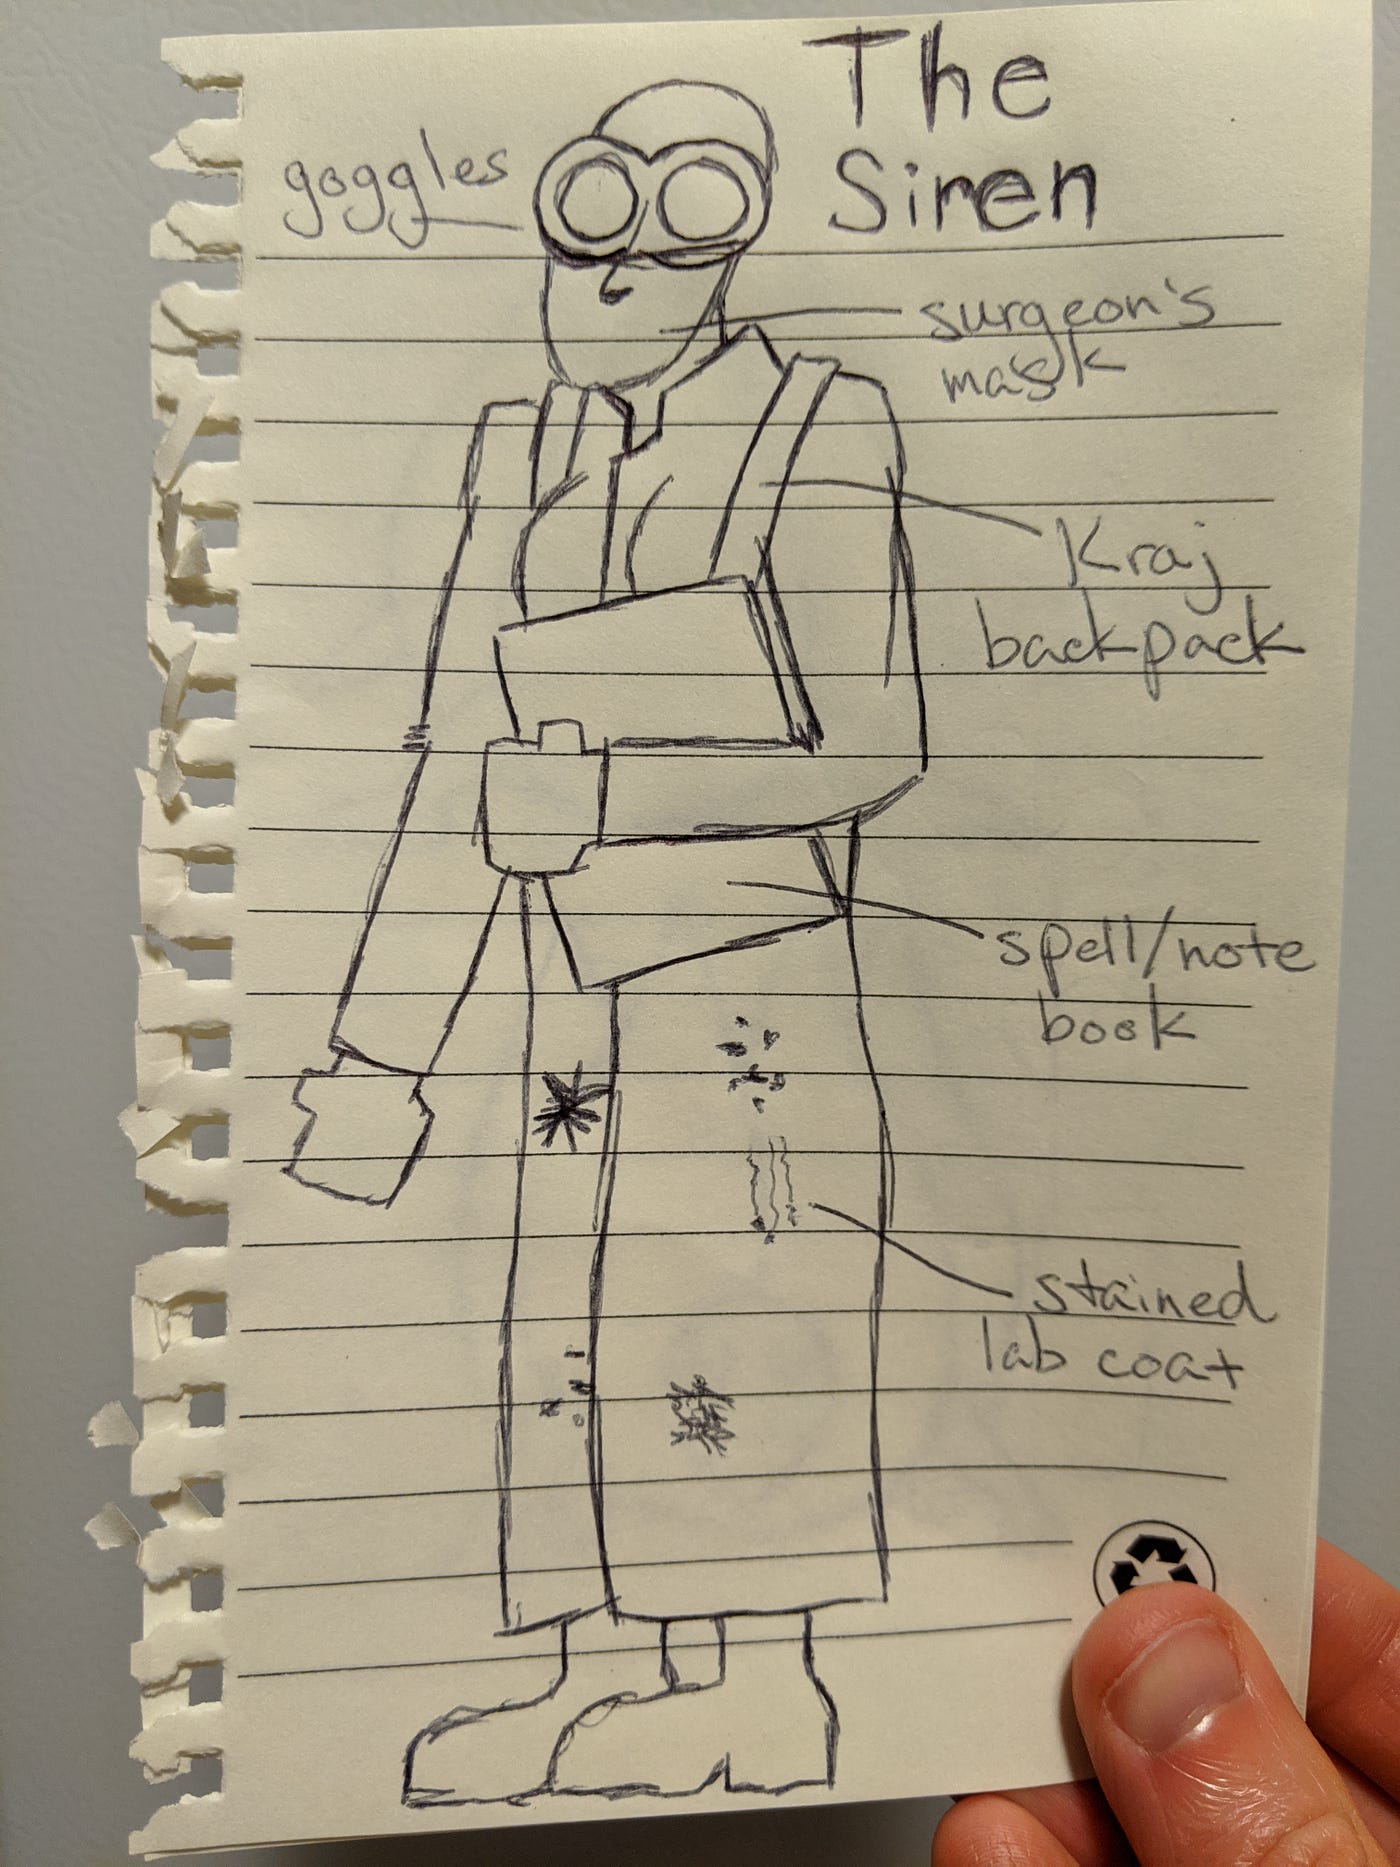 The
Siren
goggles
surgeon's
mask
Kraj
backpack
spell/note
book
stained
lab coat